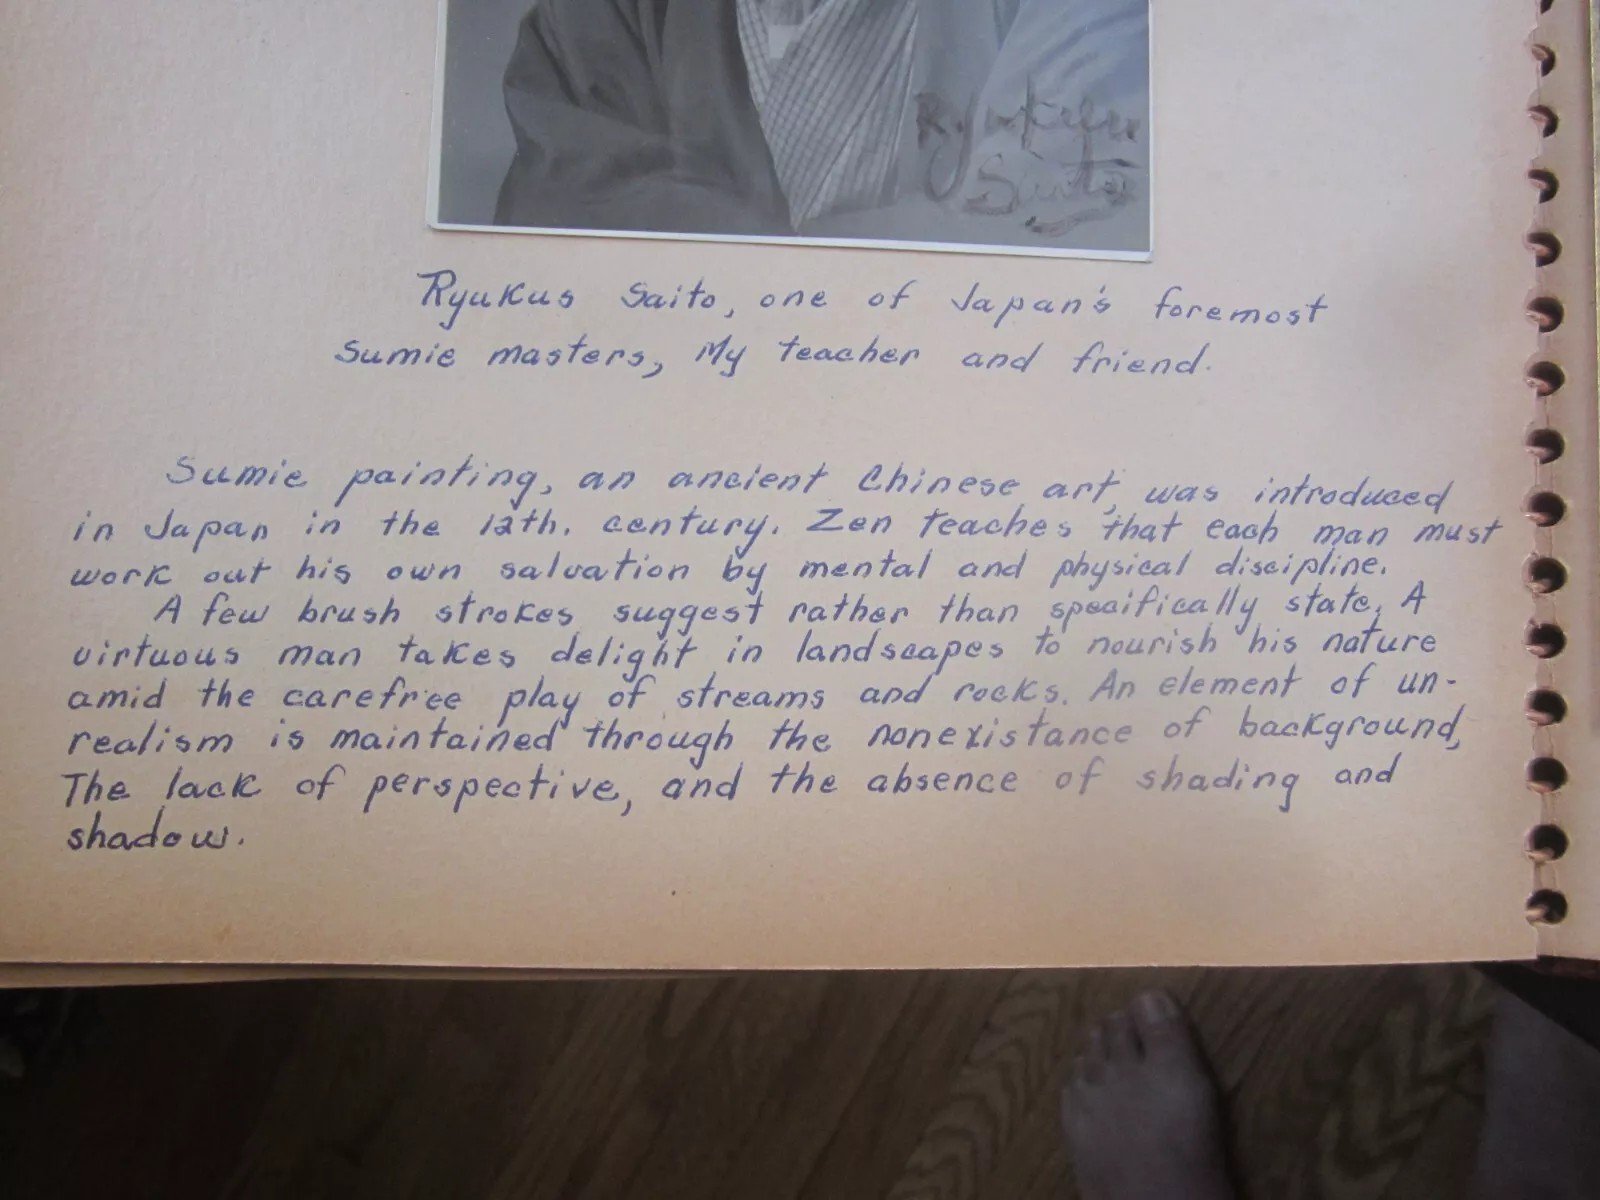 Ryukyu
Saito
Ryukus Saito, one of Japan's foremost
Sumie masters, My teacher and friend.
Sumie painting, an ancient Chinese art, was introduced
in Japan in the 12th. century. Zen teaches that each man must
work out his own salvation by mental and physical discipline.
A few brush strokes suggest rather than specifically state. A
virtuous man takes delight in landscapes to nourish his nature
amid the carefree play of streams and rocks. An element of un-
realism is maintained through the nonexistance of background,
The lack of perspective, and the absence of shading and
shadow.